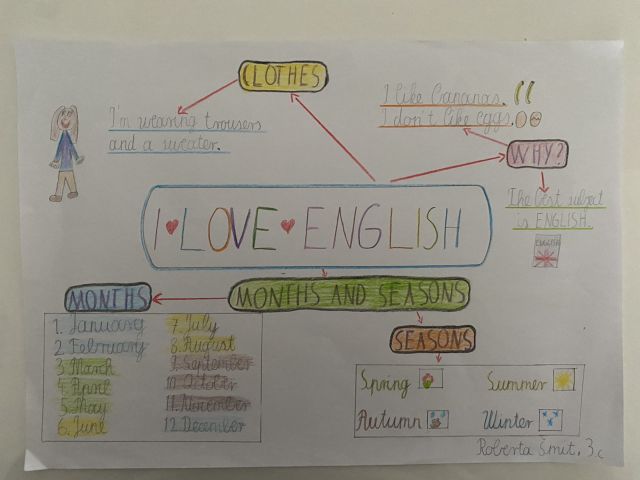 CLOTHES
I'm wearing trousers
and a sweater.
I like bananas.
I don't like eggs.
WHY?
The best subject
is ENGLISH.
ENGLISH
I LOVE ENGLISH
MONTHS AND SEASONS
MONTHS
1. January
2. February
3. March
4. April
5. May
6. June
7. July
8. August
9. September
10. October
11. November
12. December
SEASONS
Spring
Summer
Autumn
Winter
Roberta Šmit, 3.c